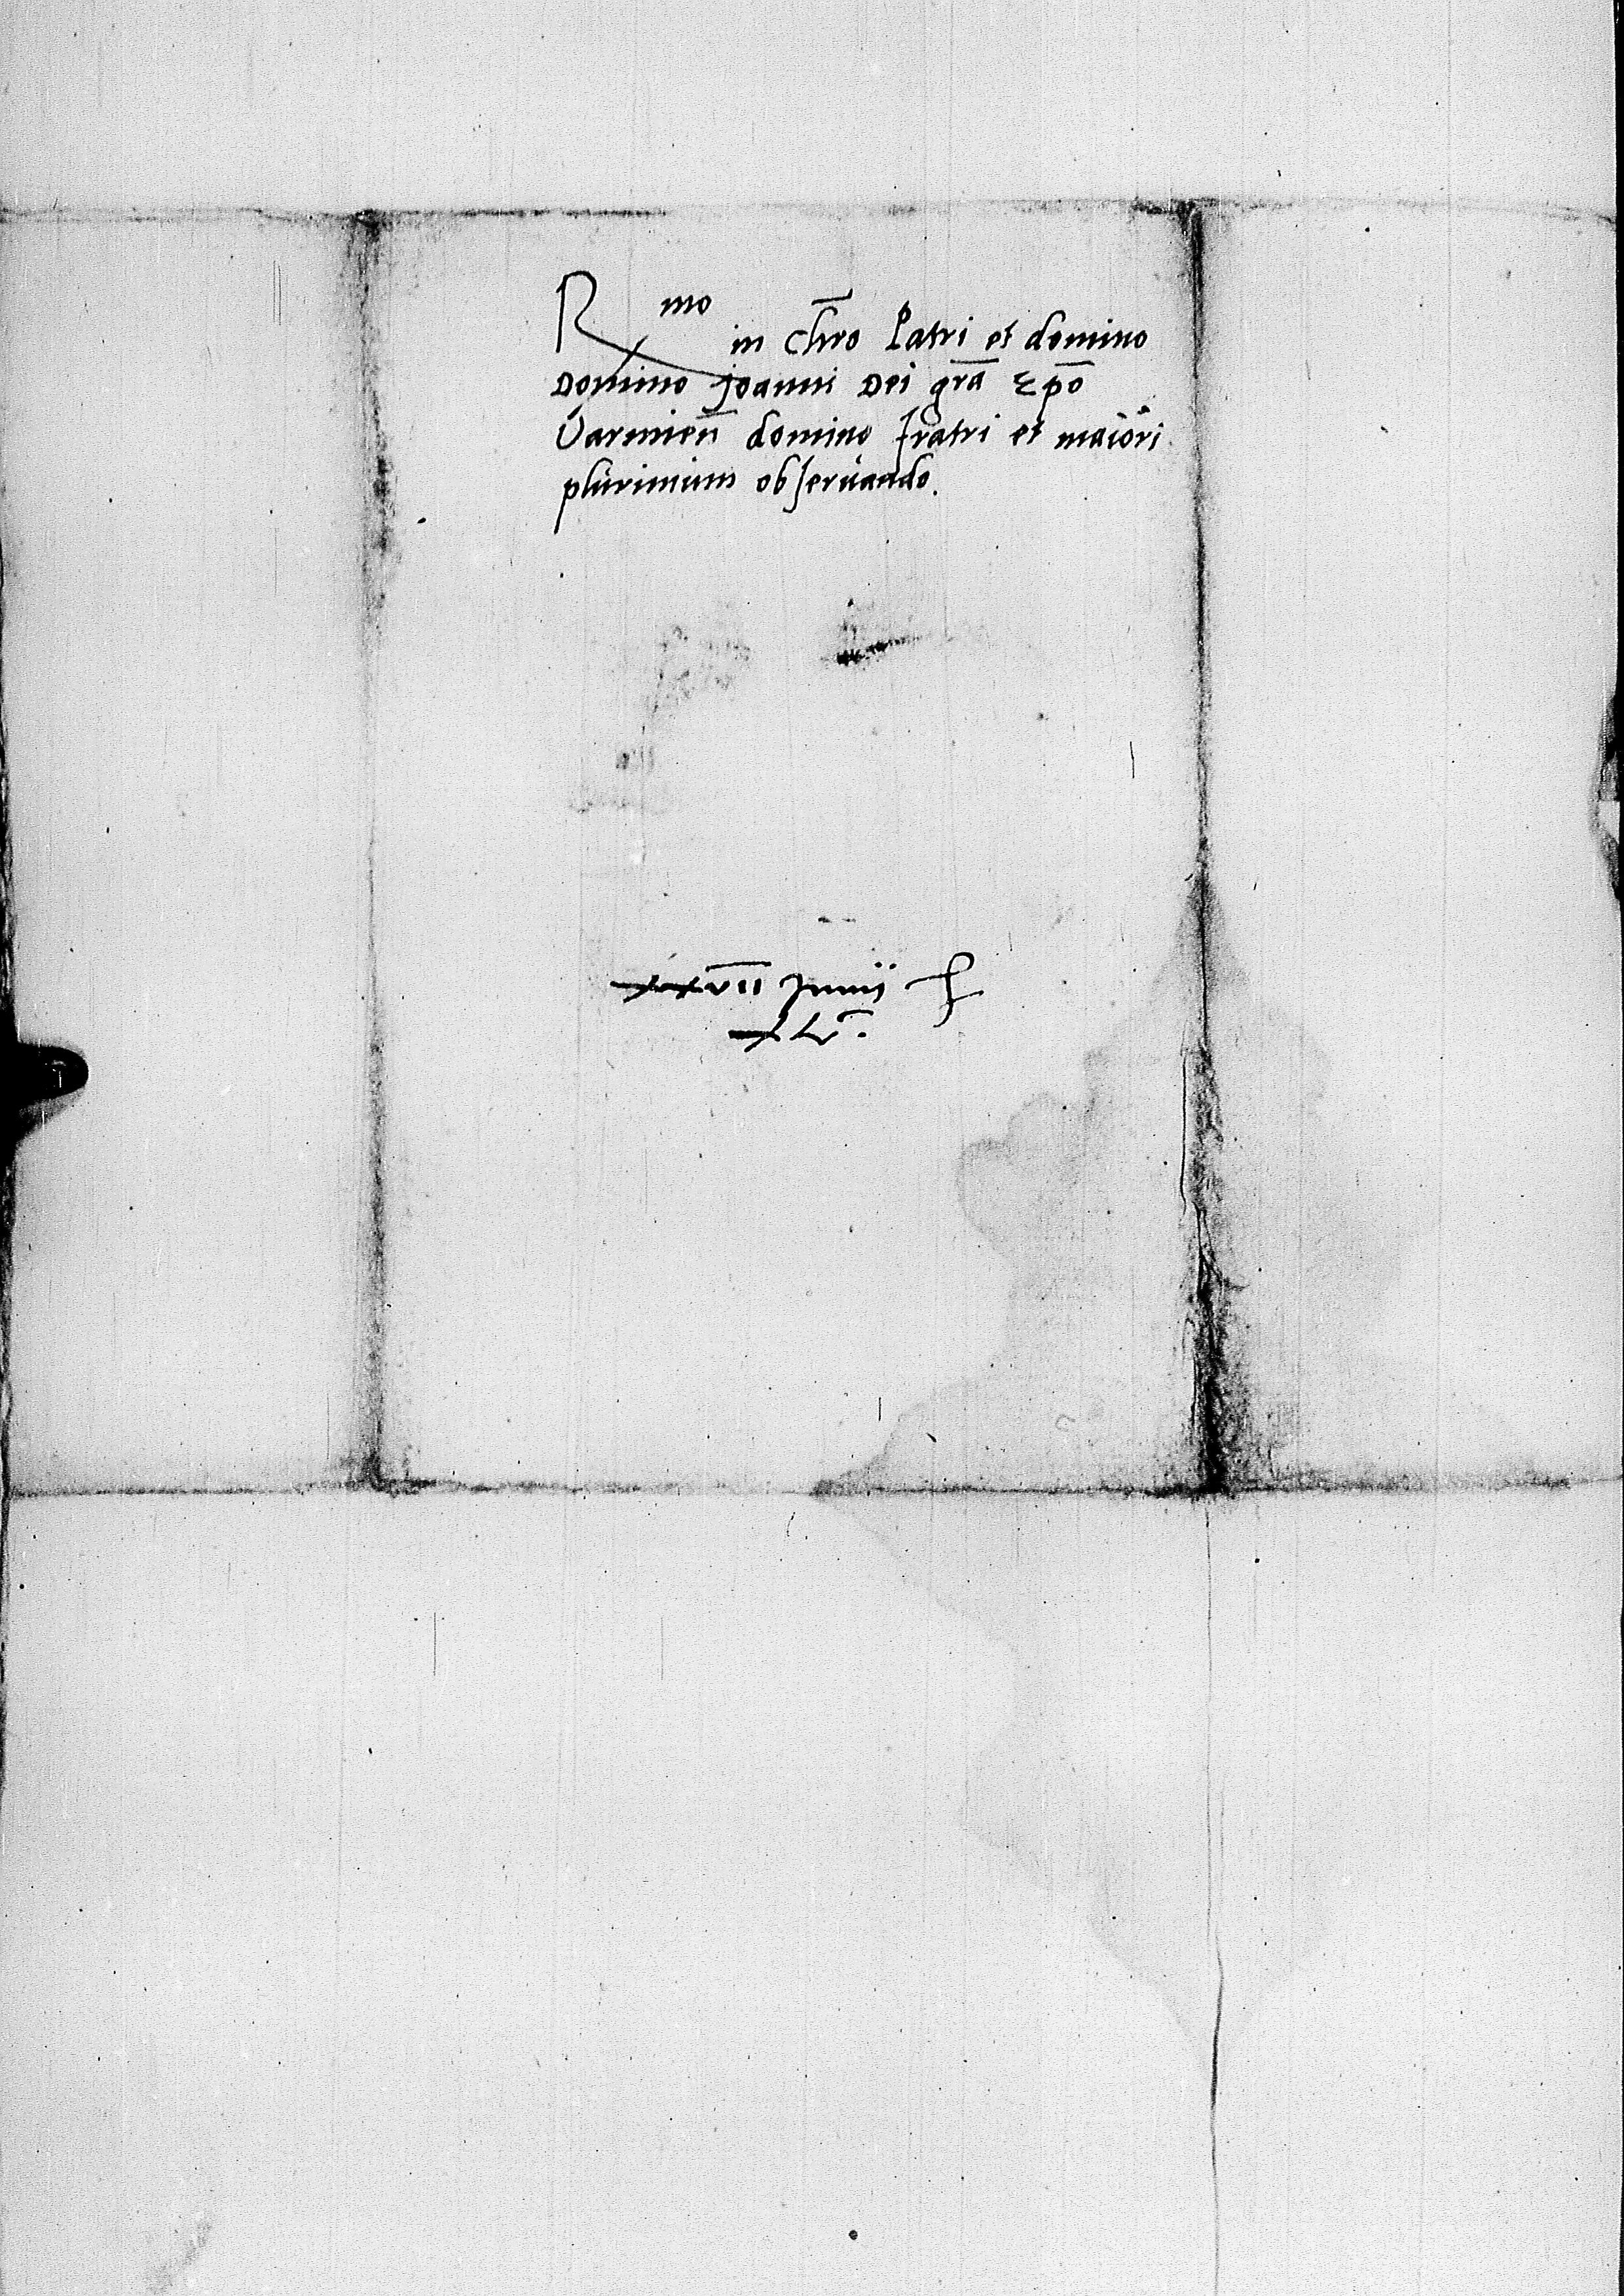 Rmo in chro Patri et domino
Domino Joanni Dei gra Epo
Varmien domino fratri et maiori
plurimum obseruando.
xxvii Junii
xlv.